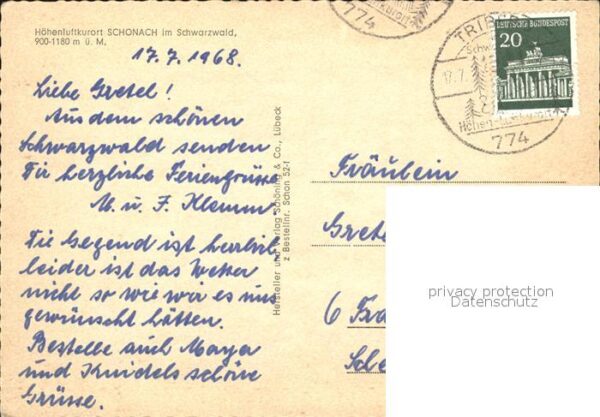 Höhenluftkurort SCHONACH im Schwarzwald,
900-1180 m ü. M.
17.7.1968.
Liebe Gretel!
Aus dem schönen
Schwarzwald senden
Dir herzliche Feriengrüsse
M. u. F. Klemm.
Die Gegend ist herrlich
leider ist das Wetter
nicht so wie wir es uns
gewünscht hätten.
Bestelle auch
und schöne
Grüsse.
Hersteller und Verlag Schöning & Co., Lübeck
z Bestellnr. Schon 52-1
774
TRIBERG
17.7.
774
DEUTSCHE BUNDESPOST
20
Fräulein
Grete
6 Fra
privacy protection
Datenschutz